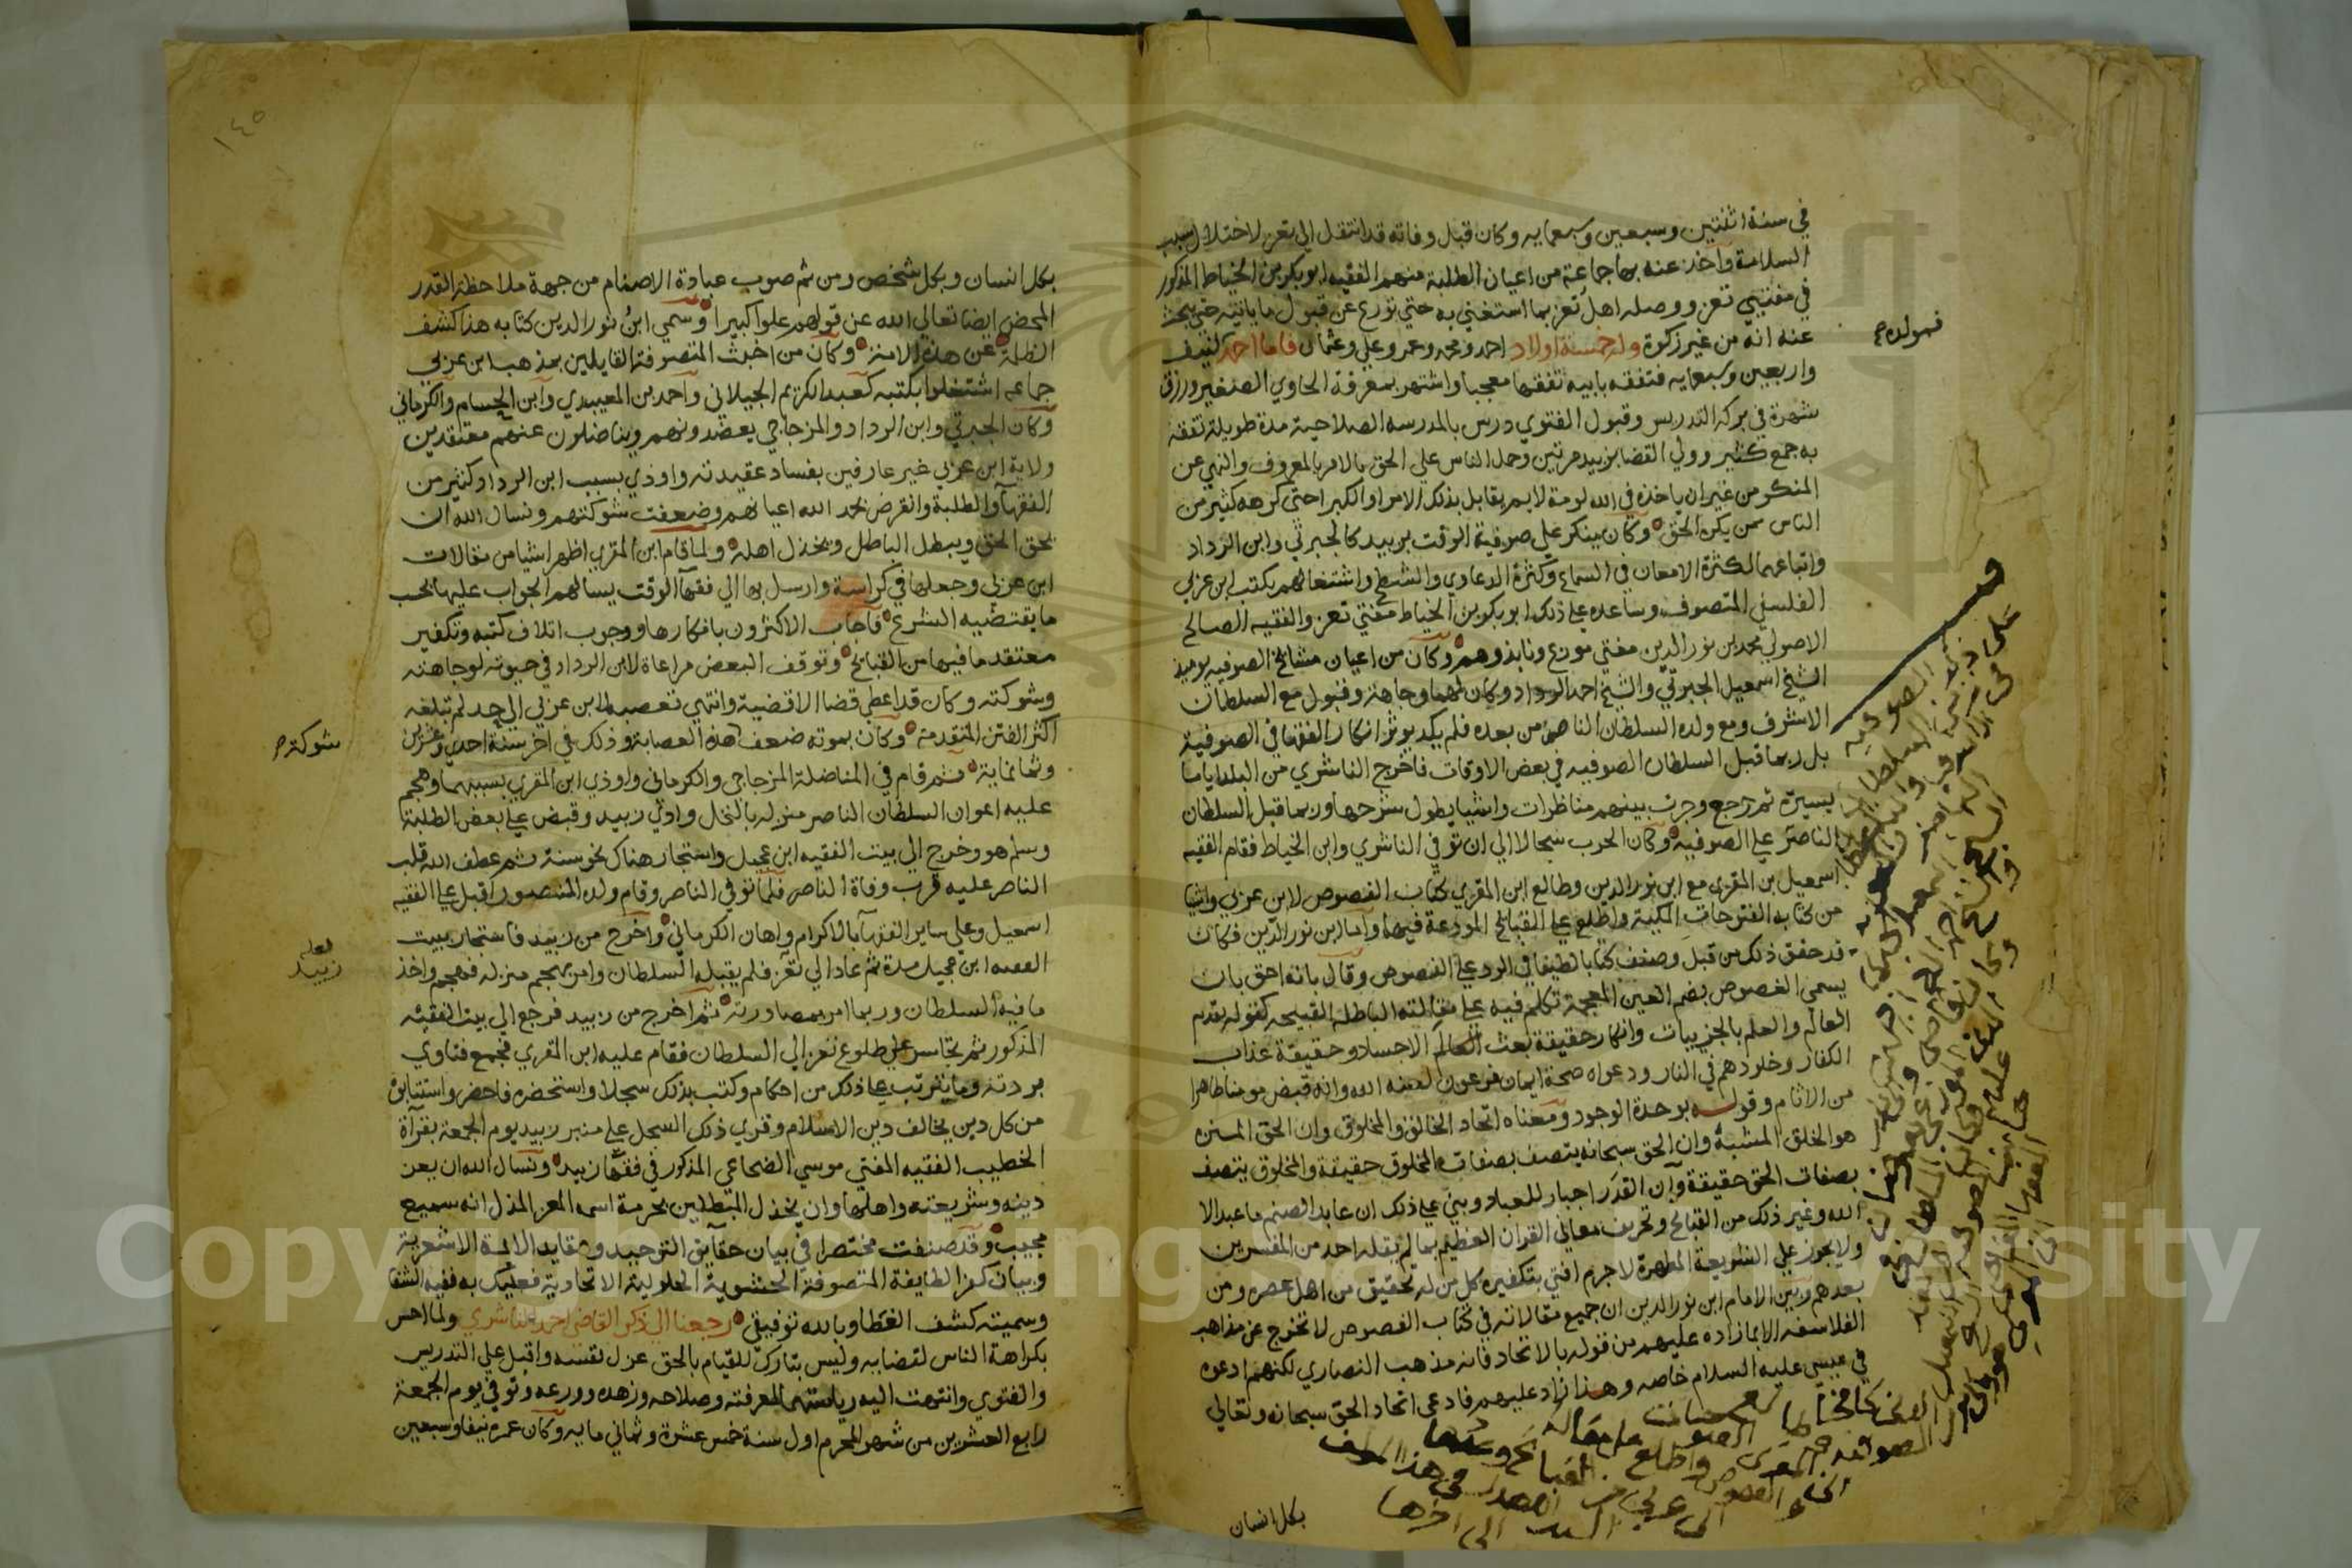 في سنة اثنتين وسبعين وسبعمايه وكان قبل وفاته قد انتقل الى تعز لاختلال سبب
السلامة وأخذ عنه بها جماعة من اعيان الطلبة منهم الفقيه ابو بكر بن الخياط المذكور
في مفتيي تعز ووصله اهل تعز بما استغنى به حتي تورع عن قبول ما ياتيه حتى يبحث
عنه انه من غير زكوة وله خمسة اولاد احمد ومحمد وعمر وعلي وعثمان فاما احمد
واربعين وسبعمايه فتفقه بابيه تفقها معجبا واشتهر بمعرفة الحاوي الصغير ورزق
شهرة في بركة التدريس وقبول الفتوي درس بالمدرسه الصلاحية مدة طويلة تفقه
به جمع كثير وولي القضا بزبيد مرتين وحمل الناس علي الحق بالامر بالمعروف والنهي عن
المنكر من غير ان ياخذه في الله لومة لايم يقابل بذلك الامرا والكبرا حتى كرهه كثير من
الناس ممن يكره الحق وكان ينكر على صوفية الوقت بزبيد كالجبرتي وابن الرداد
واتباعهما لكثرة الامعان في السماع وكثرة الدعاوي والشطح واشتغالهم بكتب ابن عربي
الفلسفي المتصوف وساعده علي ذلك ابو بكر بن الخياط مفتي تعز والفقيه الصالح
الاصولي محمد بن نور الدين مفتي موزع ونابذوهم وكان من اعيان مشائخ الصوفيه يوميذ
الشيخ اسمعيل الجبرتي والشيخ احمد الرداد وكان لهما وجاهة وقبول مع السلطان
الاشرف ومع ولده السلطان الناصر من بعده فلم يكد يوثر انكار الفقها في الصوفية
بل ربما قبل السلطان الصوفيه في بعض الاوقات فاخرج الناشري من البلد اياما
يسيرة ثم رجع وجرت بينهم مناظرات واشيا يطول شرحها وربما قبل السلطان
الناصر على الصوفيه وكان الحرب سجالا الى ان توفي الناشري وابن الخياط فقام الفقيه
اسمعيل بن المقري مع ابن نور الدين وطالع ابن المقري كتاب الفصوص لابن عربي واشيا
من كتابه الفتوحات المكية واطلع علي القبائح المودعة فيها وأما ابن نور الدين فكان
قد حقق ذلك من قبل وصنف كتابا لطيفا في الرد علي الفصوص وقال بانه احق بان
يسمى الغصوص بضم الغين المعجمة تكلم فيه على مقالته الباطلة القبيحه كقوله بقدم
العالم والعلم بالجزييات وانكار حقيقة بعث الاجساد وحقيقة عذاب
الكفار وخلودهم في النار ودعواه صحة ايمان فرعون لعنه الله وانه قبض مومنا طاهرا
من الاثام وقوله بوحدة الوجود ومعناه اتحاد الخالق والمخلوق وان الحق المنزه
هو الخلق المشبه وان الحق سبحانه يتصف بصفات المخلوق حقيقة والمخلوق يتصف
بصفات الحق حقيقة وأن القدر اجبار للعباد وبني علي ذلك ان عابد الصنم ما عبد الا
الله وغير ذلك من القبائح وتحريف معاني القران العظيم بما لم يقله احد من المفسرين
ولا يجوز على الشريعة المطهرة لاجرم افتي بتكفيره كل من له تحقيق من اهل عصره ومن
بعدهم وبين الامام ابن نور الدين ان جميع مقالاته في كتاب الفصوص لا تخرج عن مذاهب
الفلاسفه الا بما زاده عليهم من قوله بالاتحاد فانه مذهب النصاري لكنهم ادعوه
في عيسى عليه السلام خاصه وهذا زاد عليهم فادعى اتحاد الحق سبحانه وتعالي
بكل انسان
بكل انسان وبكل شخص ومن ثم صوب عبادة الاصنام من جهة ملاحظة القدر
المحض ايضا تعالى الله عن قولهم علوا كبيرا وسمي ابن نور الدين كتابه هذا كشف
الظلمة عن هذه الامة وكان من اخبث المتصوفة القايلين بمذهب ابن عربي
جماعه اشتغلوا بكتبه كعبد الكريم الجيلاني وأحمد بن المعيبدي وابن الحسام والكرماني
وكان الجبرتي وابن الرداد والمزجاجي يعضدونهم ويناضلون عنهم معتقدين
ولاية ابن عربي غير عارفين بفساد عقيدته واوذي بسبب ابن الرداد كثير من
الفقهآ والطلبة وانقرض بحمد الله اعيانهم وضعفت شوكتهم ونسال الله ان
يحق الحق ويبطل الباطل ويخذل اهله ولما قام ابن المقري اظهر اشيا من مقالات
ابن عربي وجعلها في كراسة وارسل بها الي فقهآ الوقت يسالهم الجواب عليها بحسب
ما يقتضيه الشرع فأجاب الاكثرون بانكارها ووجوب اتلاف كتبه وتكفير
معتقد ما فيها من القبايح وتوقف البعض مراعاة لابن الرداد في حيوته لوجاهته
وشوكته وكان قد اعطي قضا الاقضية وانتهي تعصبه لابن عربي الي حد لم تبلغه
اكثر الفتن المتقدمة وكان بموته ضعف هذه العصابة وذلك في اخر سنة احدى وعشرين
وثمانماية ثم قام في المناضلة المزجاجي والكرماني واوذي ابن المقري بسببهما وهجم
عليه اعوان السلطان الناصر منزله بالنخل وادي زبيد وقبض علي بعض الطلبة
وسلم هو وخرج الى بيت الفقيه ابن عجيل واستجار هناك نحو سنة ثم عطف الله قلب
الناصر عليه قرب وفاة الناصر فلما توفي الناصر وقام ولده المنصور اقبل علي الفقيه
اسمعيل وعلي ساير الفقهآ بالاكرام واهان الكرماني وأخرج من زبيد فاستجار ببيت
الفقيه ابن عجيل مدة ثم عاد الي تعز فلم يقبله السلطان وامر بهجم منزله فهجم واخذ
ما فيه السلطان وربما امر بمصادرته ثم اخرج من زبيد فرجع الى بيت الفقيه
المذكور ثم تجاسر على طلوع تعز الي السلطان فقام عليه ابن المقري فجمع فتاوي
بردته وما يترتب علي ذلك من احكام وكتب بذلك سجلا واستحضره فاحضر واستتابوه
من كل دين يخالف دين الاسلام وقري ذلك السجل علي منبر زبيد يوم الجمعة بقرآة
الخطيب الفقيه المفتي موسي الضجاعي المذكور في فقهآ زبيد ونسال الله ان يعز
دينه وشريعته واهلها وان يخذل المبطلين بحرمة اسمه المعز المذل انه سميع
مجيب وقد صنفت مختصرا في بيان حقآيق التوحيد وعقايد الايمة الاشعرية
وبيان كفر الطايفة المتصوفة الحشوية الحلولية الاتحادية فعليك به ففيه الشفا
وسميته كشف الغطا وبالله توفيقي رجعنا الي ذكر القاضي احمد الناشري ولما احس
بكراهة الناس لقضايه وليس بتارك للقيام بالحق عزل نفسه واقبل على التدريس
والفتوي وانتهت اليه رياستهما لمعرفته وصلاحه وزهده وورعه وتوفي يوم الجمعة
رابع العشرين من شهر المحرم اول سنة خمس عشرة وثماني مايه وكان عمره نيفا وسبعين
فمولده
شوكته
لعله
زبيد
١٤٥
Copyright © King Saud University